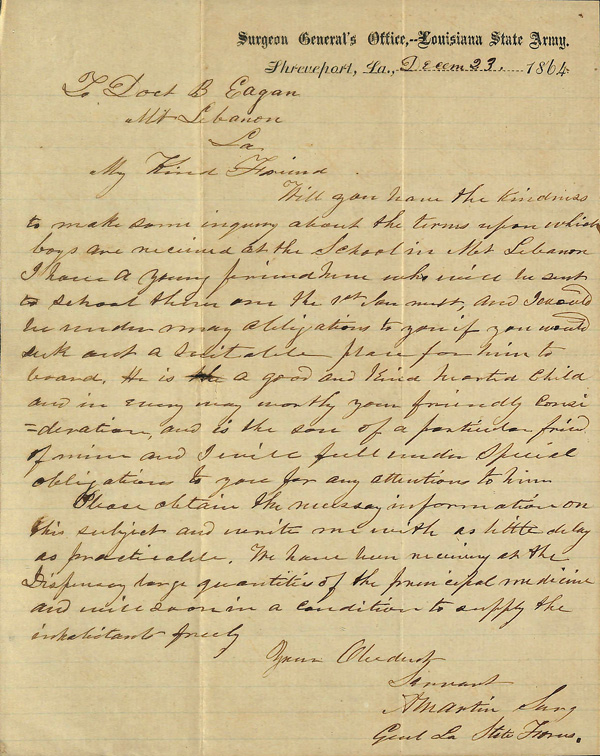 Surgeon General's Office,--Louisiana State Army.
Shreveport, La., Decem 23, 1864
To Doct B Eagan
Mt Lebanon
La
My Kind Friend
Will you have the kindness
to make some inquiry about the terms upon which
boys are received at the School in Mt Lebanon
I have a young friend here who will be sent
to school there on the 1st Jan next, and I would
be under many obligations to you if you would
seek out a suitable place for him to
board. He is the a good and kind hearted child
and in every way worthy your friendly consi
=deration, and is the son of a particular friend
of mine and I will feel under special
obligations to you for any attentions to him
Please obtain the necessay information on
this subject and write me with as little delay
as practicable. We have been receivig at the
Dispensay large quantities of the principal medicine
and will soon in a condition to supply the
inhabitants freely
Your Obedient
Servant
A Martin Surg
Genl La State Forces.